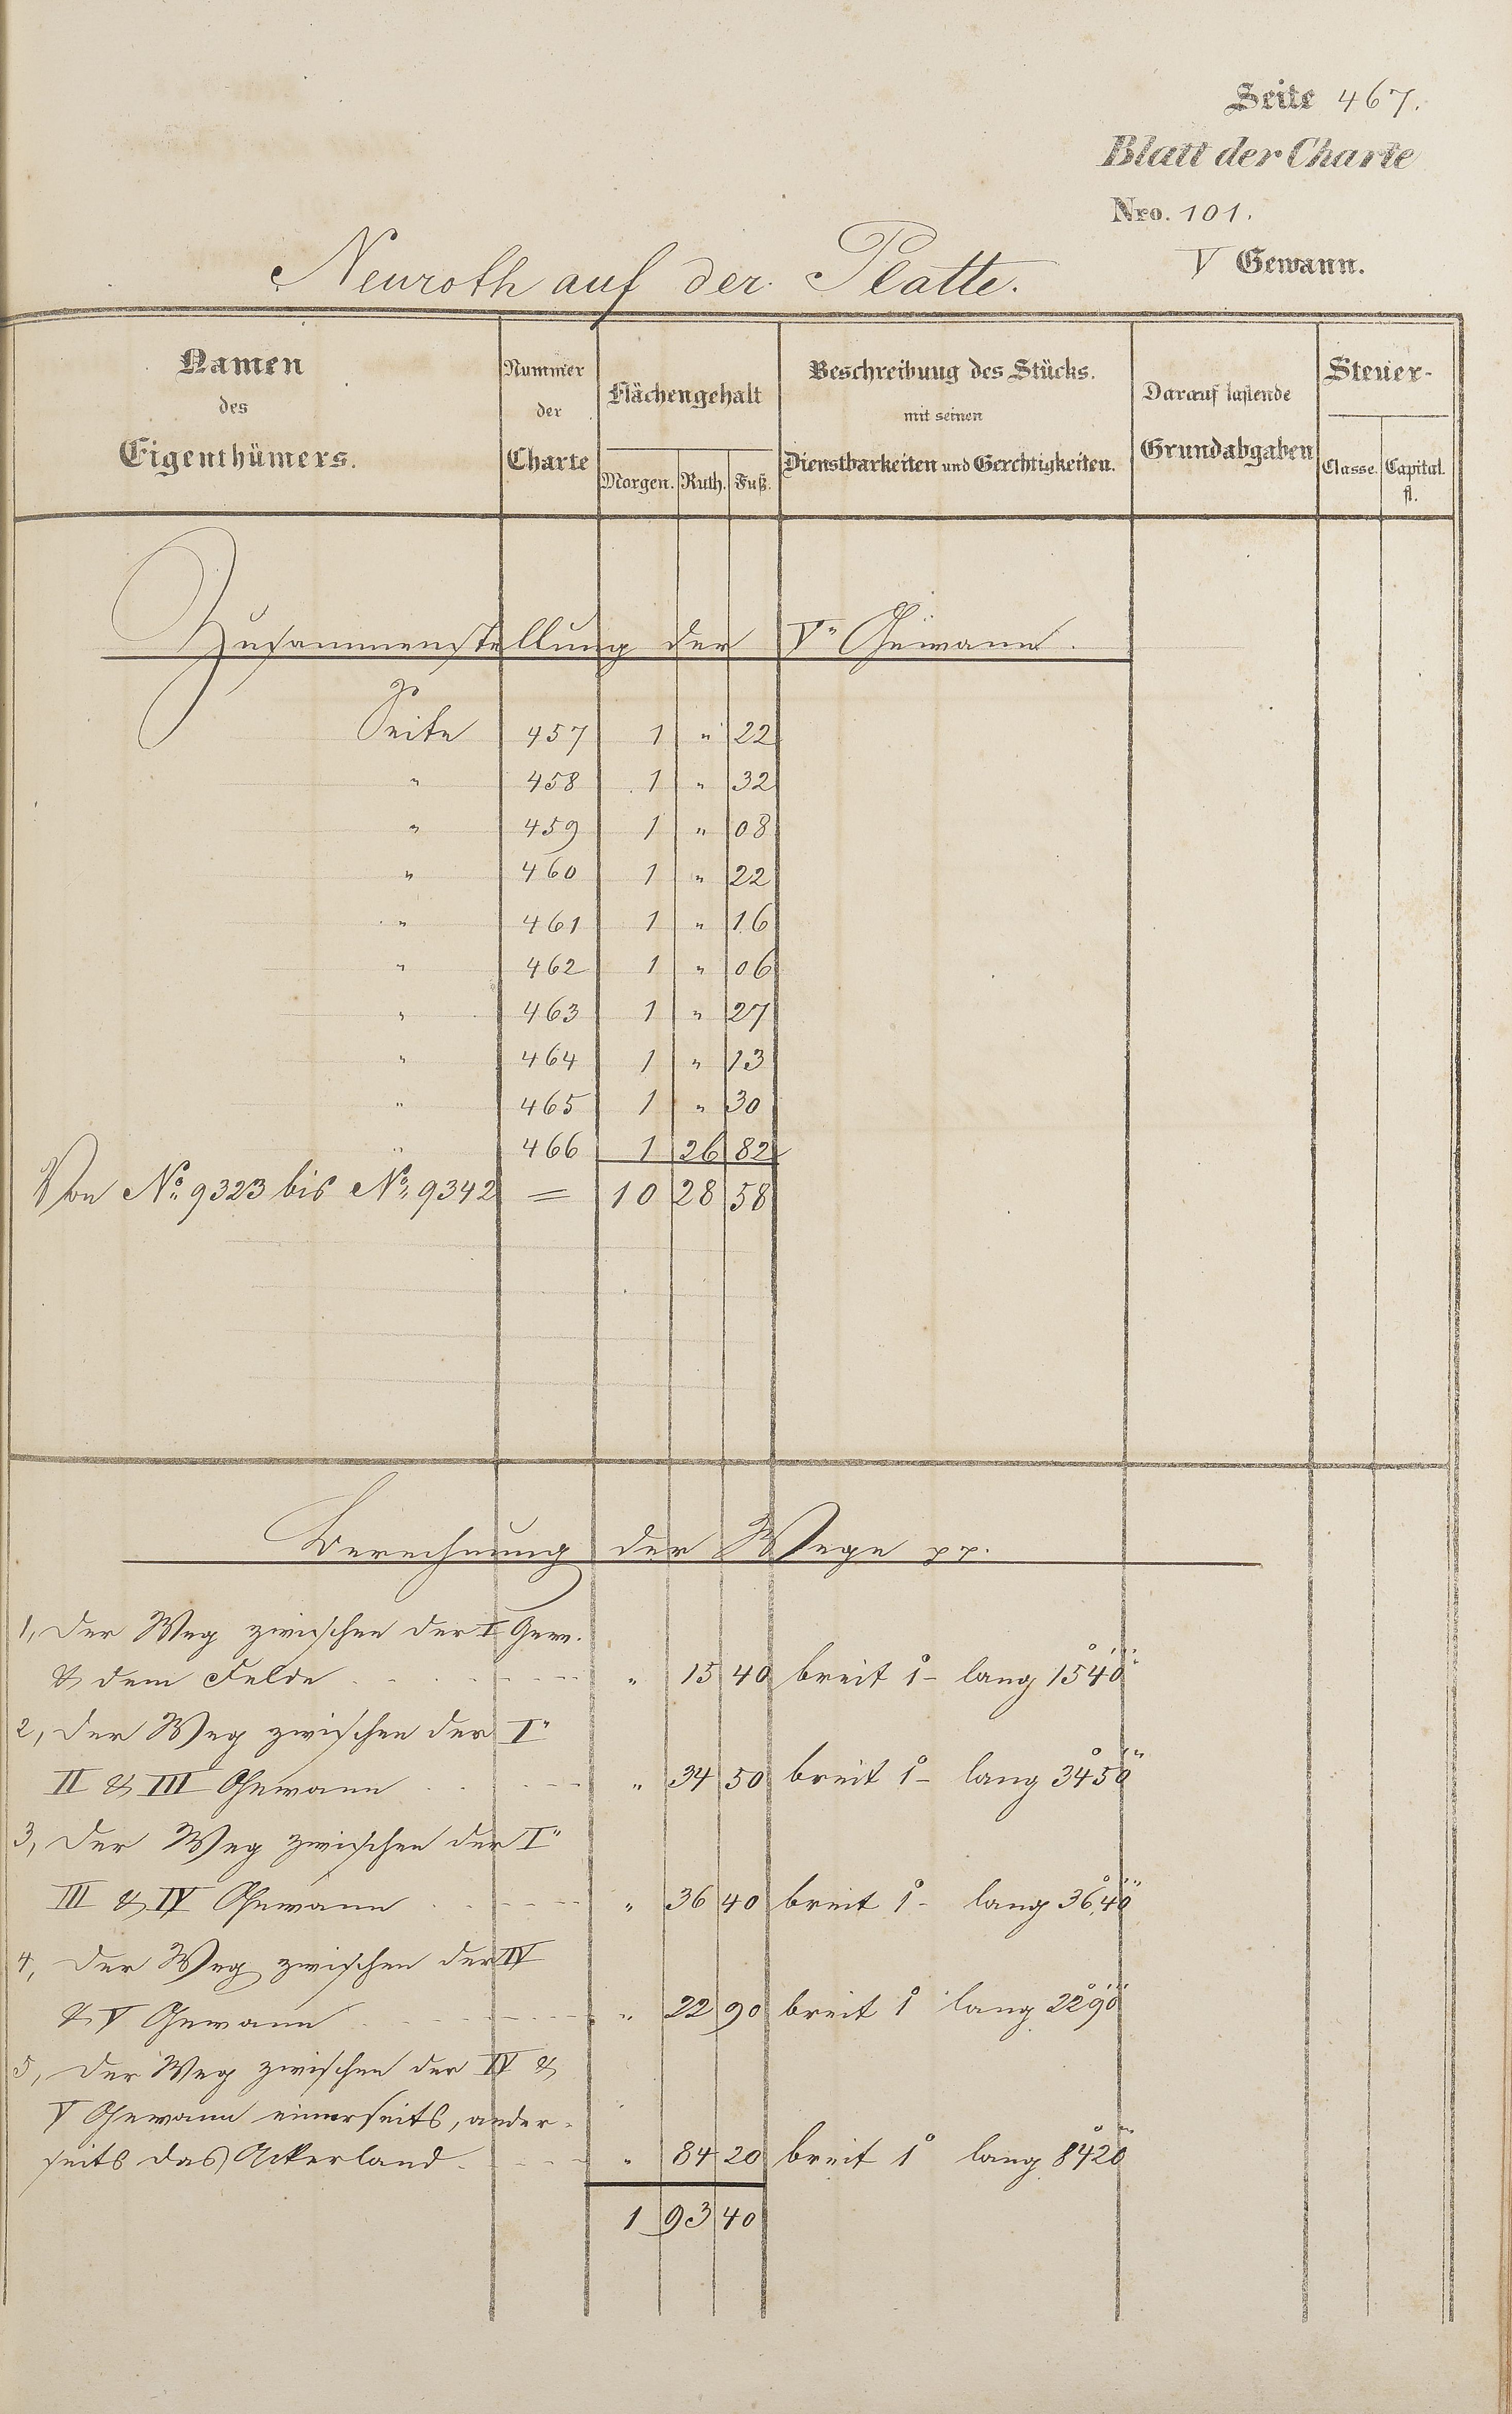 Seite 467.
Blatt der Charte
Nro. 101.
V Gewann.
Neuroth auf der Platte.
Namen des Eigenthümers.
Nummer der Charte
Flächengehalt
Morgen. Ruth. Fuß.
Beschreibung des Stücks. mit seinen Dienstbarkeiten und Gerechtigkeiten.
Darauf lastende Grundabgaben
Steuer-
Classe. Capital. fl.
Zusammenstellung der V" Gewann.
Seite 457 1 " 22
" 458 1 " 32
" 459 1 " 08
" 460 1 " 22
" 461 1 " 16
" 462 1 " 06
" 463 1 " 27
" 464 1 " 13
" 465 1 " 30
" 466 1 26 82
Von No. 9323 bis No. 9342 = 10 28 58
Berechnung der Wege pp.
1, Der Weg zwischen der I Gew.
& dem Felde - - - " 15 40 breit 1° - lang 15°4'0"
2, Der Weg zwischen der I"
II & III Gewann - - - " 34 50 breit 1° - lang 34°5'0"
3, Der Weg zwischen der I"
III & IV Gewann - - - " 36 40 breit 1° - lang 36°4'0"
4, Der Weg zwischen der IV
& V Gewann - - - " 22 90 breit 1° lang 22°9'0"
5, Der Weg zwischen der IV &
V Gewann einerseits, ander-
seits das Ackerland - - - " 84 20 breit 1° lang 84°2'0"
1 93 40